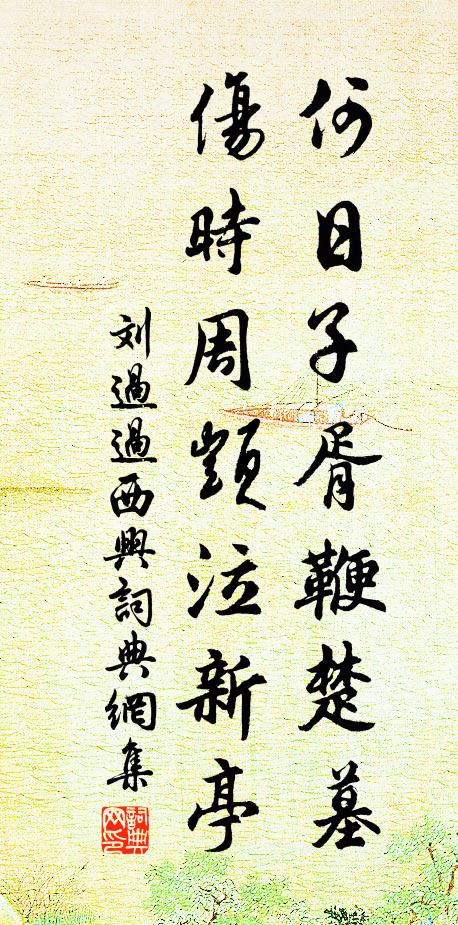 何日子胥鞭楚墓
傷時周顗泣新亭
刘過過西興詞典網集
詞典網印